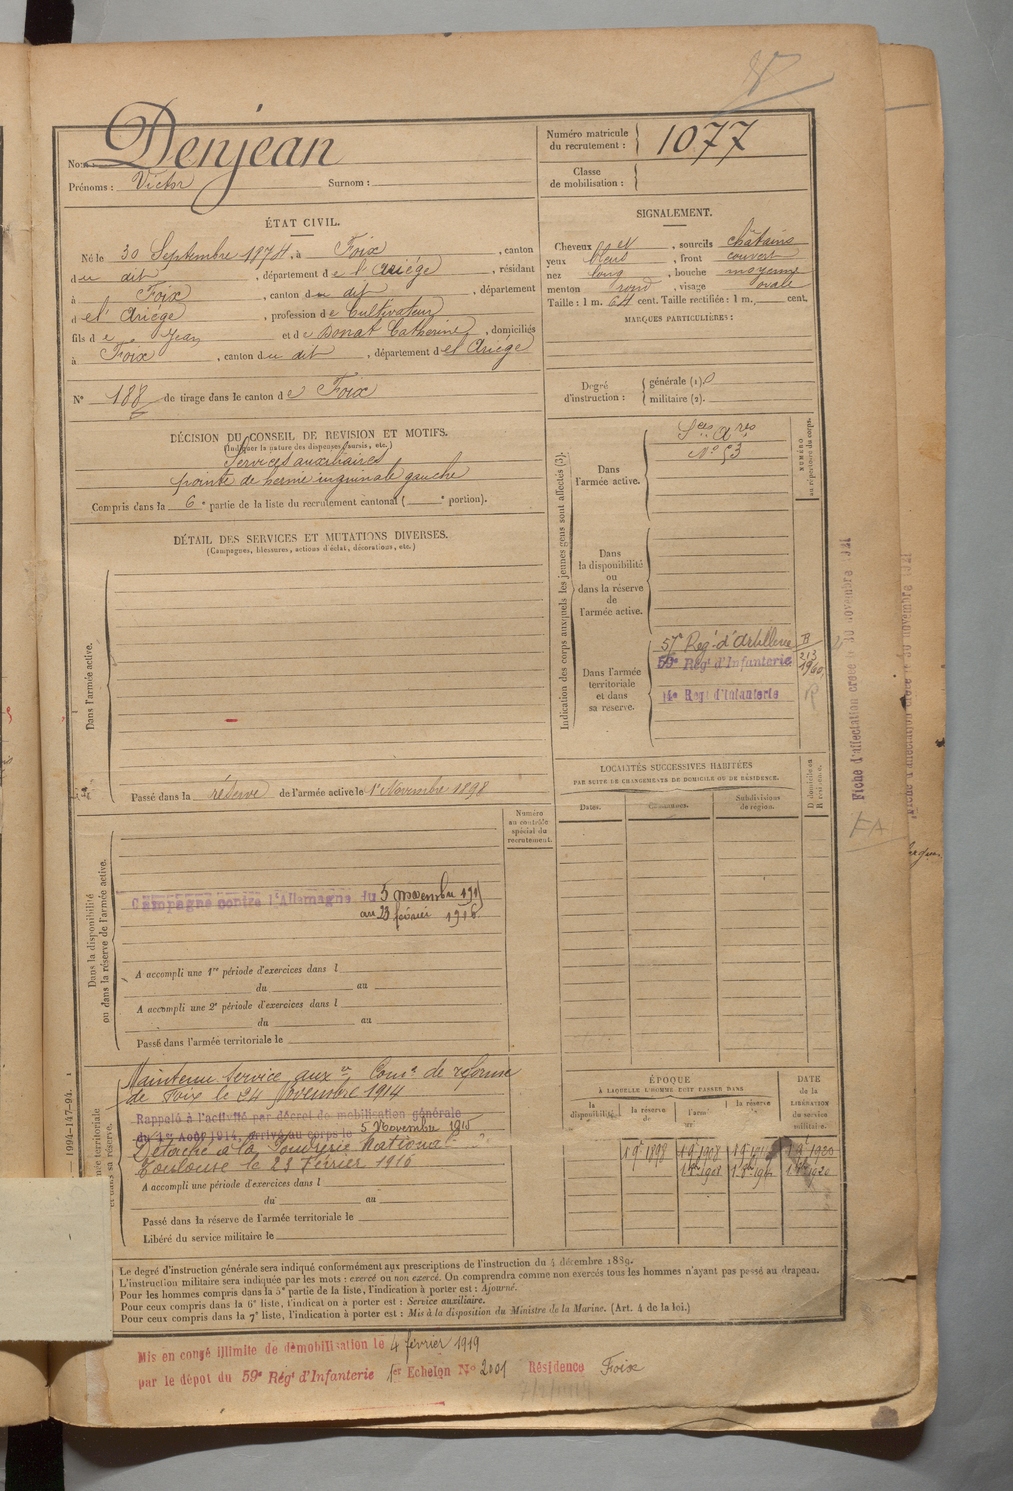 Nom : Denjean
Prénoms : Victor Surnom :
Numéro matricule du recrutement : 1077
Classe de mobilisation :
ÉTAT CIVIL.
Né le 30 Septembre 1874, à Foix, canton
du dit, département de l'Ariége, résidant
à Foix, canton du dit, département
de l'Ariége, profession de Cultivateur
fils de Jean et de Donat Catherine, domiciliés
à Foix, canton du dit, département de l'Ariége
N° 188 de tirage dans le canton de Foix
SIGNALEMENT.
Cheveux et, sourcils châtains
yeux bleus, front couvert
nez long, bouche moyenne
menton rond, visage ovale
Taille : 1 m. 64 cent. Taille rectifiée : 1 m. cent.
MARQUES PARTICULIÈRES :
Degré d'instruction : générale (1) 0
militaire (2).
DÉCISION DU CONSEIL DE REVISION ET MOTIFS.
(Indiquer la nature des dispenses, sursis, etc.)
Services auxiliaires
pointe de hernie inguinale gauche
Compris dans la 6e partie de la liste du recrutement cantonal ( e portion).
DÉTAIL DES SERVICES ET MUTATIONS DIVERSES.
(Campagnes, blessures, actions d'éclat, décorations, etc.)
Dans l'armée active.
Passé dans la réserve de l'armée active le 1er Novembre 1898
Numéro au contrôle spécial du recrutement.
Dans la disponibilité ou dans la réserve de l'armée active.
Campagne contre l'Allemagne du 5 novembre 1915
au 23 février 1916
A accompli une 1re période d'exercices dans l
du au
A accompli une 2e période d'exercices dans l
du au
Passé dans l'armée territoriale le
Maintenu Service auxre Conson de réforme
de Foix le 24 Novembre 1914
Rappelé à l'activité par décret de mobilisation générale
du 1er Août 1914, arrivé au corps le 5 Novembre 1915
Détaché à la Poudrerie Nationale
Toulouse le 23 Février 1916
A accompli une période d'exercices dans l
du au
Passé dans la réserve de l'armée territoriale le
Libéré du service militaire le
Indication des corps auxquels les jeunes gens sont affectés (3).
NUMÉRO au répertoire du corps.
Dans l'armée active.
Sces Ares
N° 53
Dans la disponibilité ou dans la réserve de l'armée active.
Dans l'armée territoriale et dans sa réserve.
57e Regt d'Artillerie
59e Régt d'Infanterie
14e Régt d'Infanterie
LOCALITÉS SUCCESSIVES HABITÉES
PAR SUITE DE CHANGEMENTS DE DOMICILE OU DE RÉSIDENCE.
Dates. Communes. Subdivisions de région. D domicile ou R résidence.
ÉPOQUE
À LAQUELLE L'HOMME DOIT PASSER DANS
DATE DE LA LIBÉRATION du service militaire.
la disponibilité. la réserve de l'armée la réserve
Fiche d'affectation créée le 30 novembre 1921
FA
1994-147-94.
Le degré d'instruction générale sera indiqué conformément aux prescriptions de l'instruction du 4 décembre 1889.
L'instruction militaire sera indiquée par les mots : exercé ou non exercé. On comprendra comme non exercés tous les hommes n'ayant pas passé au drapeau.
Pour les hommes compris dans la 5e partie de la liste, l'indication à porter est : Ajourné.
Pour ceux compris dans la 6e liste, l'indication à porter est : Service auxiliaire.
Pour ceux compris dans la 7e liste, l'indication à porter est : Mis à la disposition du Ministre de la Marine. (Art. 4 de la loi.)
Mis en congé illimité de démobilisation le 4 février 1919
par le dépôt du 59e Régt d'Infanterie 1er Echelon N° 2001 Résidence Foix